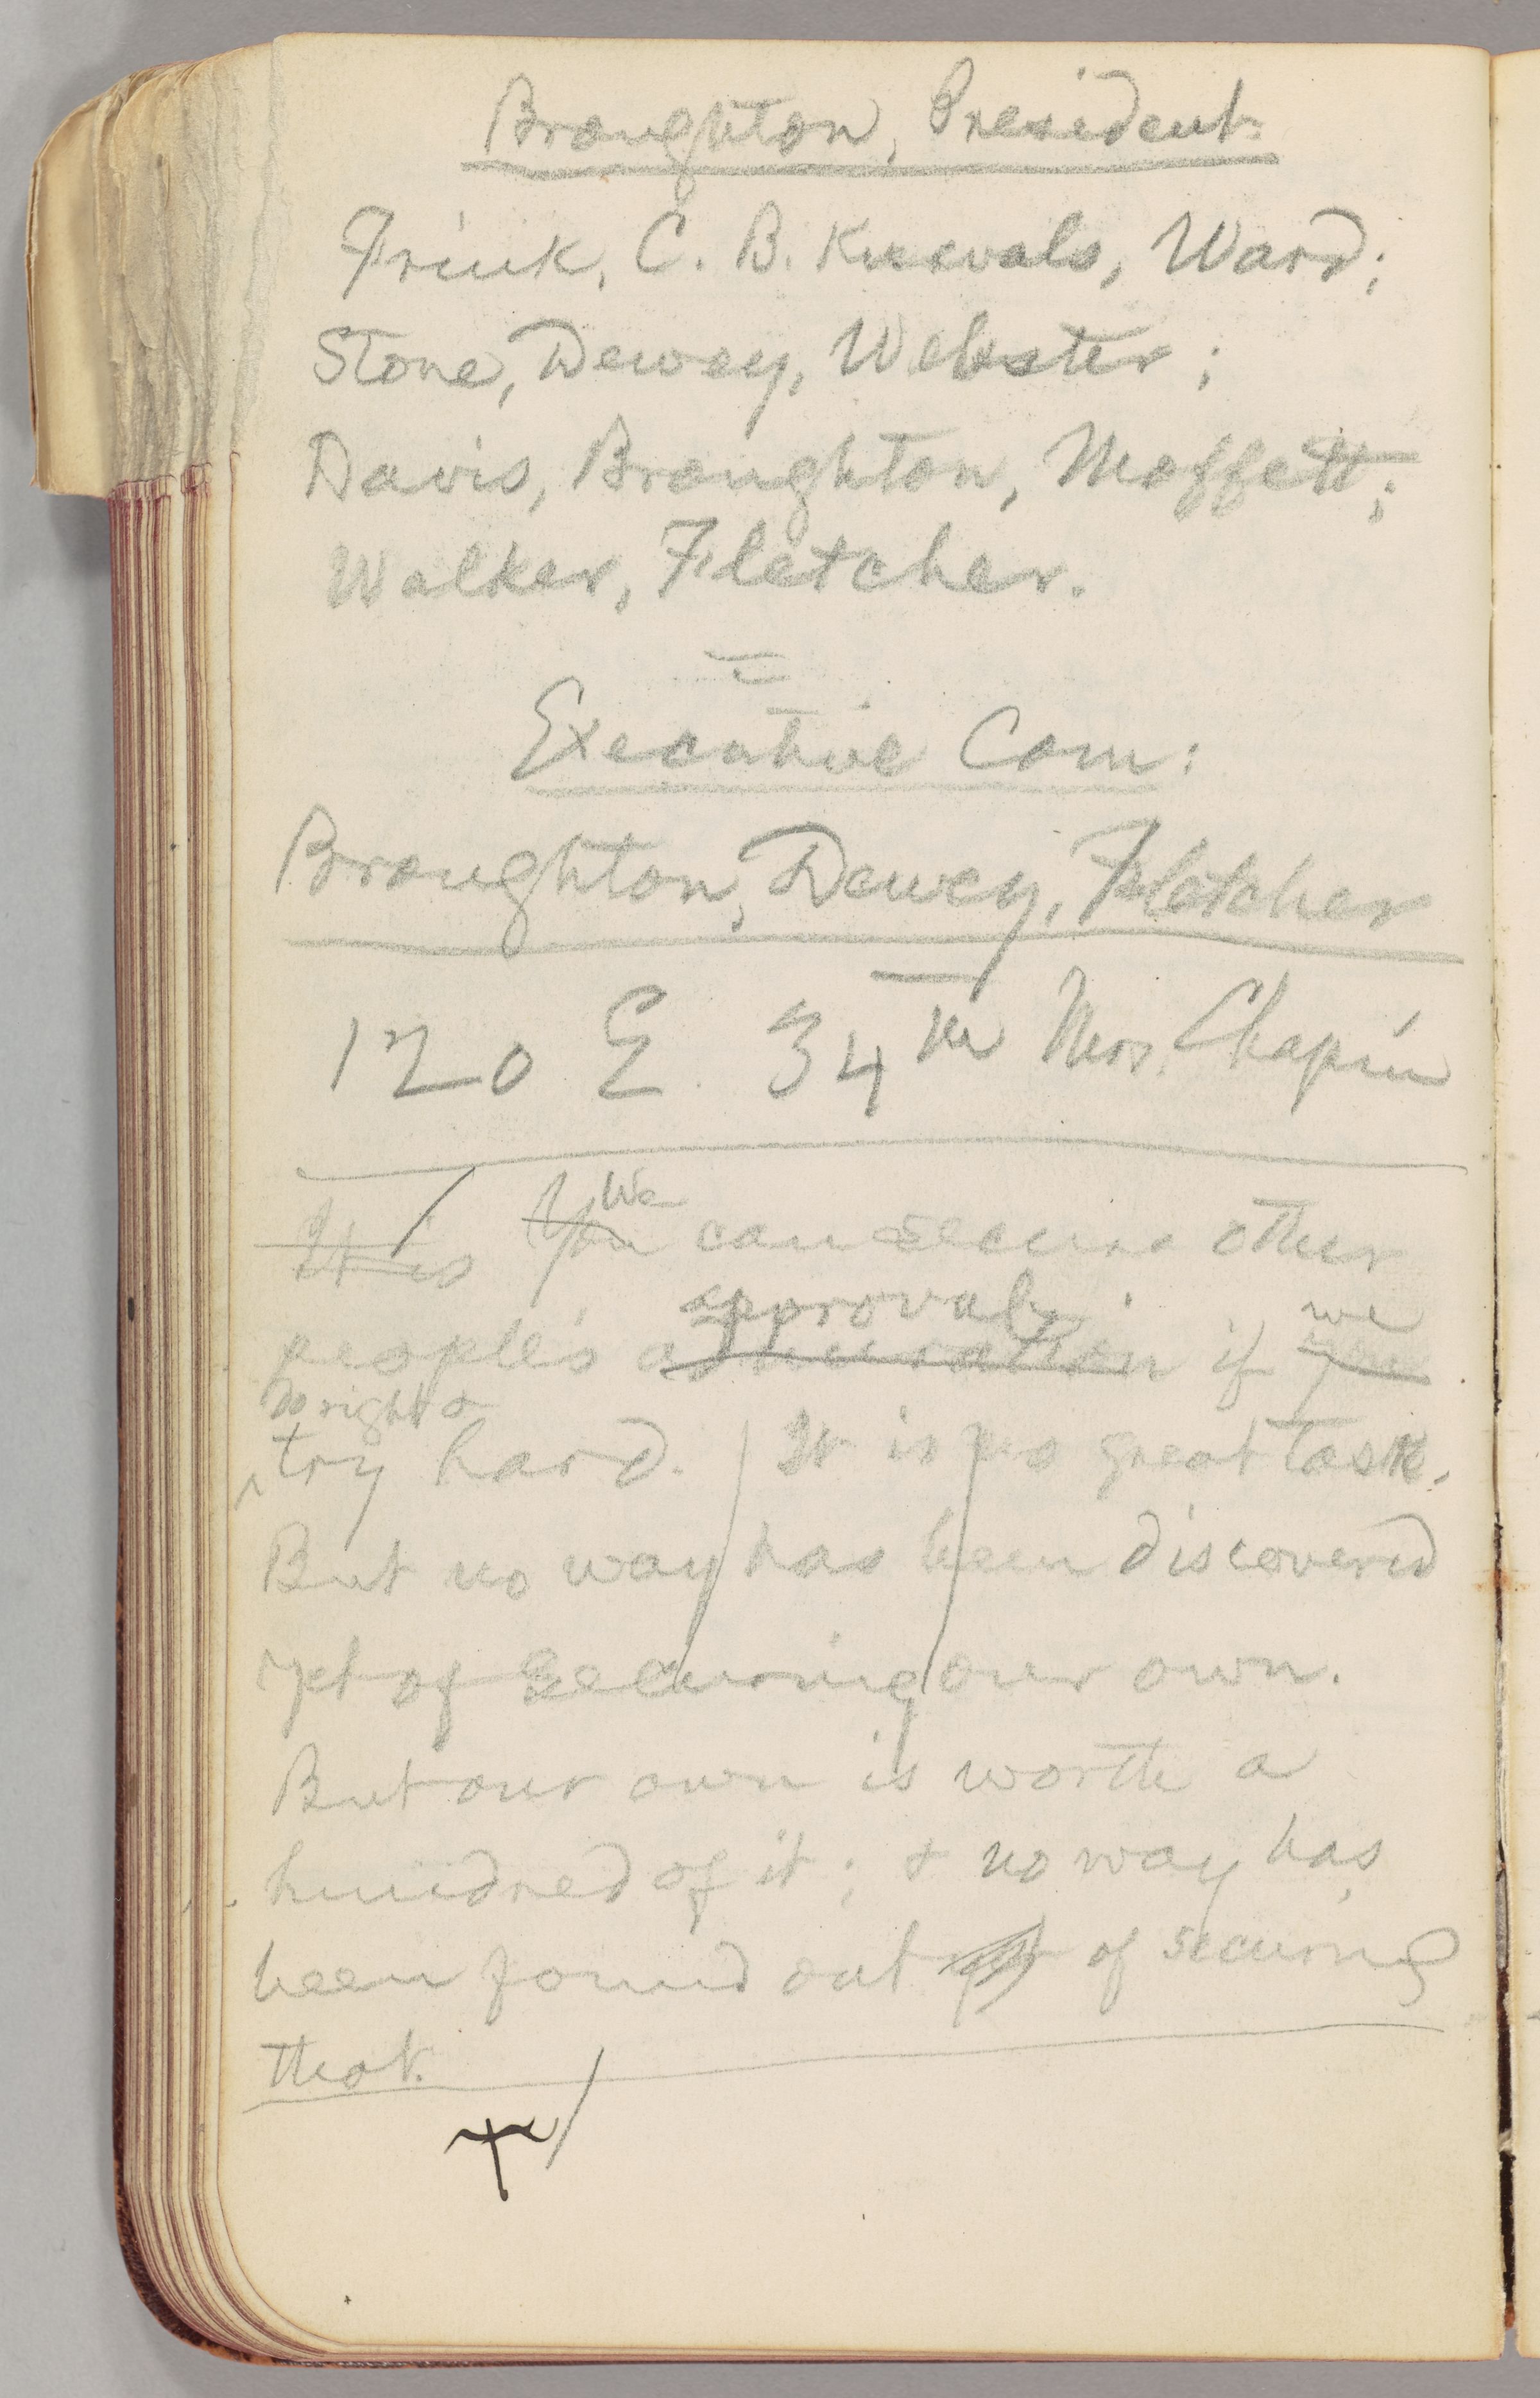 Broughton, President.
Frink, C. B. Knevals, Ward;
Stone, Dewey, Webster;
Davis, Broughton, Moffett;
Walker, Fletcher.
Executive Com:
Broughton, Dewey, Fletcher
120 E. 34th Mrs. Chapin
It is You We can secure other
approval we
people's admiration if you
do right &
try hard. It is no great task.
But no way has been discovered
yet of securing our own.
But our own is worth a
hundred of it; & no way has
been found out of securing
that.